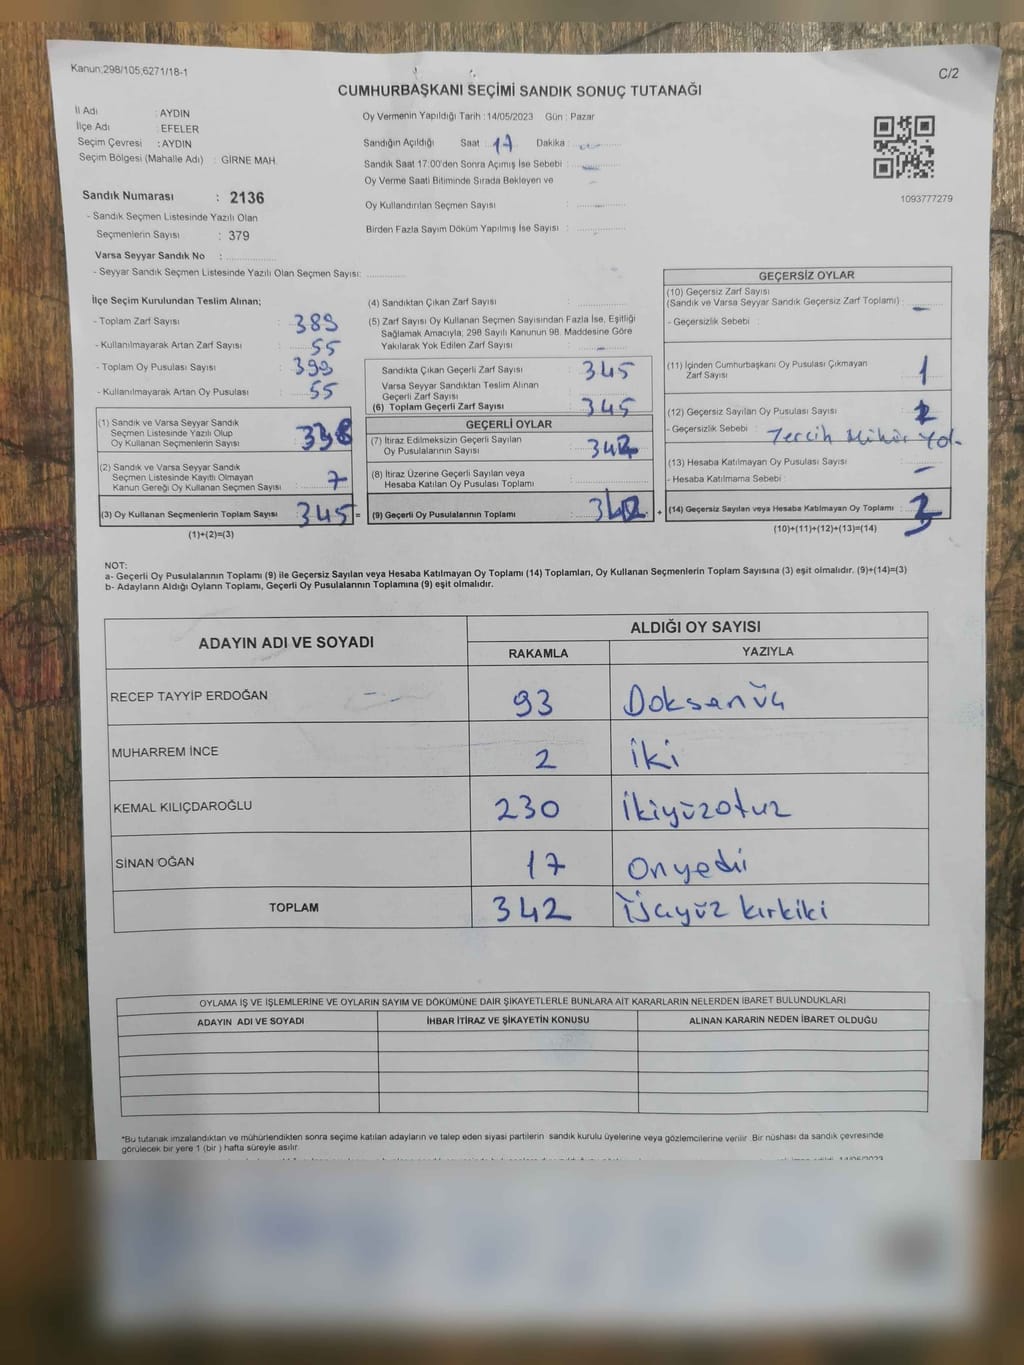 Kanun;298/105,6271/18-1
C/2
CUMHURBAŞKANI SEÇİMİ SANDIK SONUÇ TUTANAĞI
İl Adı : AYDIN
İlçe Adı : EFELER
Seçim Çevresi : AYDIN
Seçim Bölgesi (Mahalle Adı) : GİRNE MAH.
Sandık Numarası : 2136
- Sandık Seçmen Listesinde Yazılı Olan
Seçmenlerin Sayısı : 379
Varsa Seyyar Sandık No :
- Seyyar Sandık Seçmen Listesinde Yazılı Olan Seçmen Sayısı:
Oy Vermenin Yapıldığı Tarih : 14/05/2023 Gün : Pazar
Sandığın Açıldığı Saat : 17 Dakika :
Sandık Saat 17:00'den Sonra Açımış İse Sebebi :
Oy Verme Saati Bitiminde Sırada Bekleyen ve
Oy Kullandırılan Seçmen Sayısı :
Birden Fazla Sayım Döküm Yapılmış İse Sayısı :
1093777279
İlçe Seçim Kurulundan Teslim Alınan;
- Toplam Zarf Sayısı : 389
- Kullanılmayarak Artan Zarf Sayısı : 55
- Toplam Oy Pusulası Sayısı : 399
- Kullanılmayarak Artan Oy Pusulası : 55
(1) Sandık ve Varsa Seyyar Sandık
Seçmen Listesinde Yazılı Olup
Oy Kullanan Seçmenlerin Sayısı : 338
(2) Sandık ve Varsa Seyyar Sandık
Seçmen Listesinde Kayıtlı Olmayan
Kanun Gereği Oy Kullanan Seçmen Sayısı : 7
(3) Oy Kullanan Seçmenlerin Toplam Sayısı : 345 =
(1)+(2)=(3)
(4) Sandıktan Çıkan Zarf Sayısı :
(5) Zarf Sayısı Oy Kullanan Seçmen Sayısından Fazla İse, Eşitliği
Sağlamak Amacıyla; 298 Sayılı Kanunun 98. Maddesine Göre
Yakılarak Yok Edilen Zarf Sayısı :
Sandıkta Çıkan Geçerli Zarf Sayısı : 345
Varsa Seyyar Sandıktan Teslim Alınan
Geçerli Zarf Sayısı :
(6) Toplam Geçerli Zarf Sayısı : 345
GEÇERLİ OYLAR
(7) İtiraz Edilmeksizin Geçerli Sayılan
Oy Pusulalarının Sayısı : 342
(8) İtiraz Üzerine Geçerli Sayılan veya
Hesaba Katılan Oy Pusulası Toplamı :
(9) Geçerli Oy Pusulalarının Toplamı : 342 +
GEÇERSİZ OYLAR
(10) Geçersiz Zarf Sayısı
(Sandık ve Varsa Seyyar Sandık Geçersiz Zarf Toplamı) :
- Geçersizlik Sebebi :
(11) İçinden Cumhurbaşkanı Oy Pusulası Çıkmayan
Zarf Sayısı : 1
(12) Geçersiz Sayılan Oy Pusulası Sayısı : 2
- Geçersizlik Sebebi : Tercih Mühür Yok.
(13) Hesaba Katılmayan Oy Pusulası Sayısı :
- Hesaba Katılmama Sebebi :
(14) Geçersiz Sayılan veya Hesaba Katılmayan Oy Toplamı : 3
(10)+(11)+(12)+(13)=(14)
NOT:
a- Geçerli Oy Pusulalarının Toplamı (9) ile Geçersiz Sayılan veya Hesaba Katılmayan Oy Toplamı (14) Toplamları, Oy Kullanan Seçmenlerin Toplam Sayısına (3) eşit olmalıdır. (9)+(14)=(3)
b- Adayların Aldığı Oyların Toplamı, Geçerli Oy Pusulalarının Toplamına (9) eşit olmalıdır.
ADAYIN ADI VE SOYADI
ALDIĞI OY SAYISI
RAKAMLA YAZIYLA
RECEP TAYYİP ERDOĞAN 93 Doksanüç
MUHARREM İNCE 2 İki
KEMAL KILIÇDAROĞLU 230 İkiyüzotuz
SİNAN OĞAN 17 Onyedi
TOPLAM 342 Üçyüz kırkiki
OYLAMA İŞ VE İŞLEMLERİNE VE OYLARIN SAYIM VE DÖKÜMÜNE DAİR ŞİKAYETLERLE BUNLARA AİT KARARLARIN NELERDEN İBARET BULUNDUKLARI
ADAYIN ADI VE SOYADI İHBAR İTİRAZ VE ŞİKAYETİN KONUSU ALINAN KARARIN NEDEN İBARET OLDUĞU
*Bu tutanak imzalandıktan ve mühürlendikten sonra seçime katılan adayların ve talep eden siyasi partilerin sandık kurulu üyelerine veya gözlemcilerine verilir. Bir nüshası da sandık çevresinde
görülecek bir yere 1 (bir ) hafta süreyle asılır.